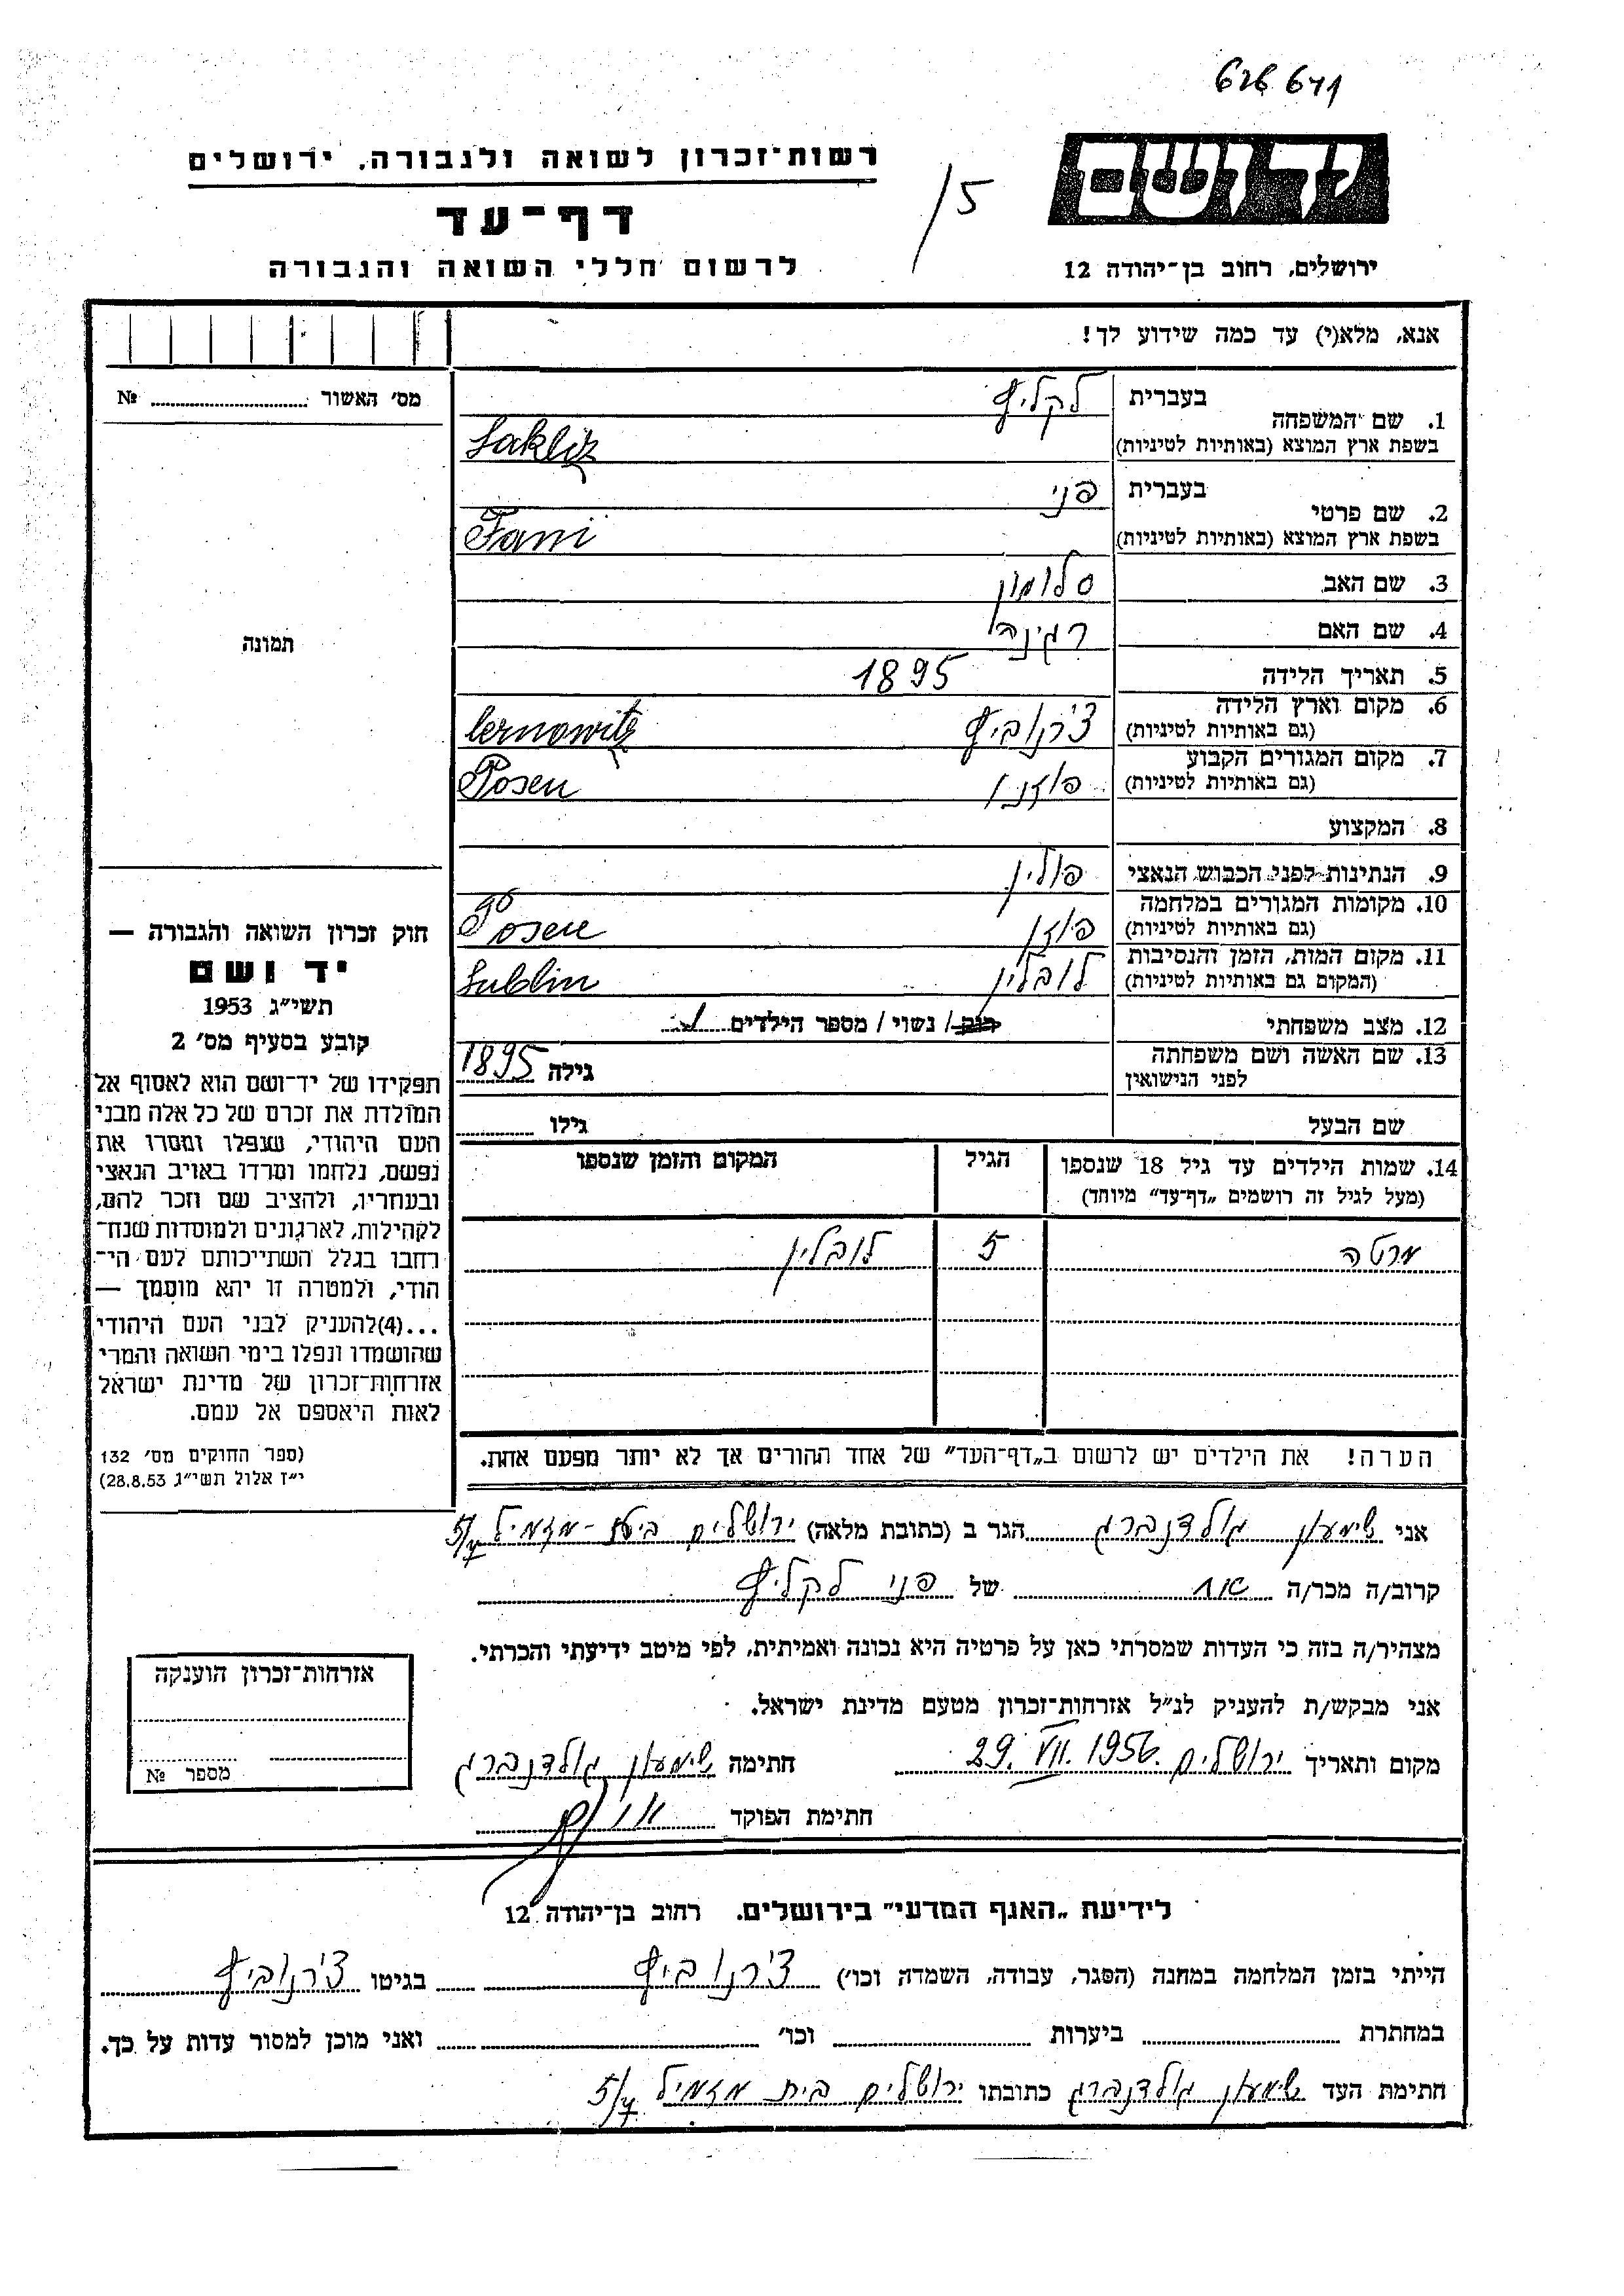 626 671
רשות־זכרון לשואה ולגבורה, ירושלים
יד ושם
15
דף־עד
לרשום חללי השואה והגבורה
ירושלים, רחוב בן־יהודה 12
אנא, מלא(י) עד כמה שידוע לך!
מס׳ האשור № 
1. שם המשפחה
בעברית לקליץ
בשפת ארץ המוצא (באותיות לטיניות) Laklitz
2. שם פרטי
בעברית פני
בשפת ארץ המוצא (באותיות לטיניות) Fani
3. שם האב סלומון
4. שם האם רגינה
תמונה
5. תאריך הלידה 1895
6. מקום וארץ הלידה
(גם באותיות לטיניות) צ'רנוביץ Cernowitz
7. מקום המגורים הקבוע
(גם באותיות לטיניות) פוזנ Posen
8. המקצוע
9. הנתינות לפני הכבוש הנאצי פולין
10. מקומות המגורים במלחמה
(גם באותיות לטיניות) פוזן Posen
11. מקום המות, הזמן והנסיבות
(המקום גם באותיות לטיניות) לובלין Lublin
12. מצב משפחתי רוק / נשוי / מספר הילדים
13. שם האשה ושם משפחתה
לפני הנישואין גילה 1895
שם הבעל גילו
14. שמות הילדים עד גיל 18 שנספו
(מעל לגיל זה רושמים „דף־עד” מיוחד)
הגיל
המקום והזמן שנספו
מרטה 5 לובלין
חוק זכרון השואה והגבורה —
יד ושם
תשי״ג 1953
קובע בסעיף מס׳ 2
תפקידו של יד־ושם הוא לאסוף אל
המולדת את זכרם של כל אלה מבני
העם היהודי, שנפלו ומסרו את
נפשם, נלחמו ומרדו באויב הנאצי
ובעוזריו, ולהציב שם וזכר להם,
לקהילות, לארגונים ולמוסדות שנח־
רבו בגלל השתייכותם לעם הי־
הודי, ולמטרה זו יהא מוסמך —
...(4) להעניק לבני העם היהודי
שהושמדו ונפלו בימי השואה והמרי
אזרחות־זכרון של מדינת ישראל
לאות היאספם אל עמם.
(ספר החוקים מס׳ 132
י״ז אלול תשי״ג 28.8.53)
הערה! את הילדים יש לרשום ב„דף־העד” של אחד ההורים אך לא יותר מפעם אחת.
אני שימעון גולדנברג הגר ב (כתובת מלאה) ירושלים בית-מזמיל
קרוב/ה מכר/ה של פני לקליץ
מצהיר/ה בזה כי העדות שמסרתי כאן על פרטיה היא נכונה ואמיתית, לפי מיטב ידיעתי והכרתי.
אני מבקש/ת להעניק לנ״ל אזרחות־זכרון מטעם מדינת ישראל.
מקום ותאריך ירושלים 29. VII. 1956. חתימה שימעון גולדנברג
חתימת הפוקד
אזרחות־זכרון הוענקה
מספר №
לידיעת „האגף המדעי” בירושלים, רחוב בן־יהודה 12
הייתי בזמן המלחמה במחנה (הסגר, עבודה, השמדה וכו׳) צ'רנוביץ בגיטו צ'רנוביץ
במחתרת ביערות וכו׳ ואני מוכן למסור עדות על כך.
חתימת העד שימעון גולדנברג כתובתו ירושלים בית מזמיל